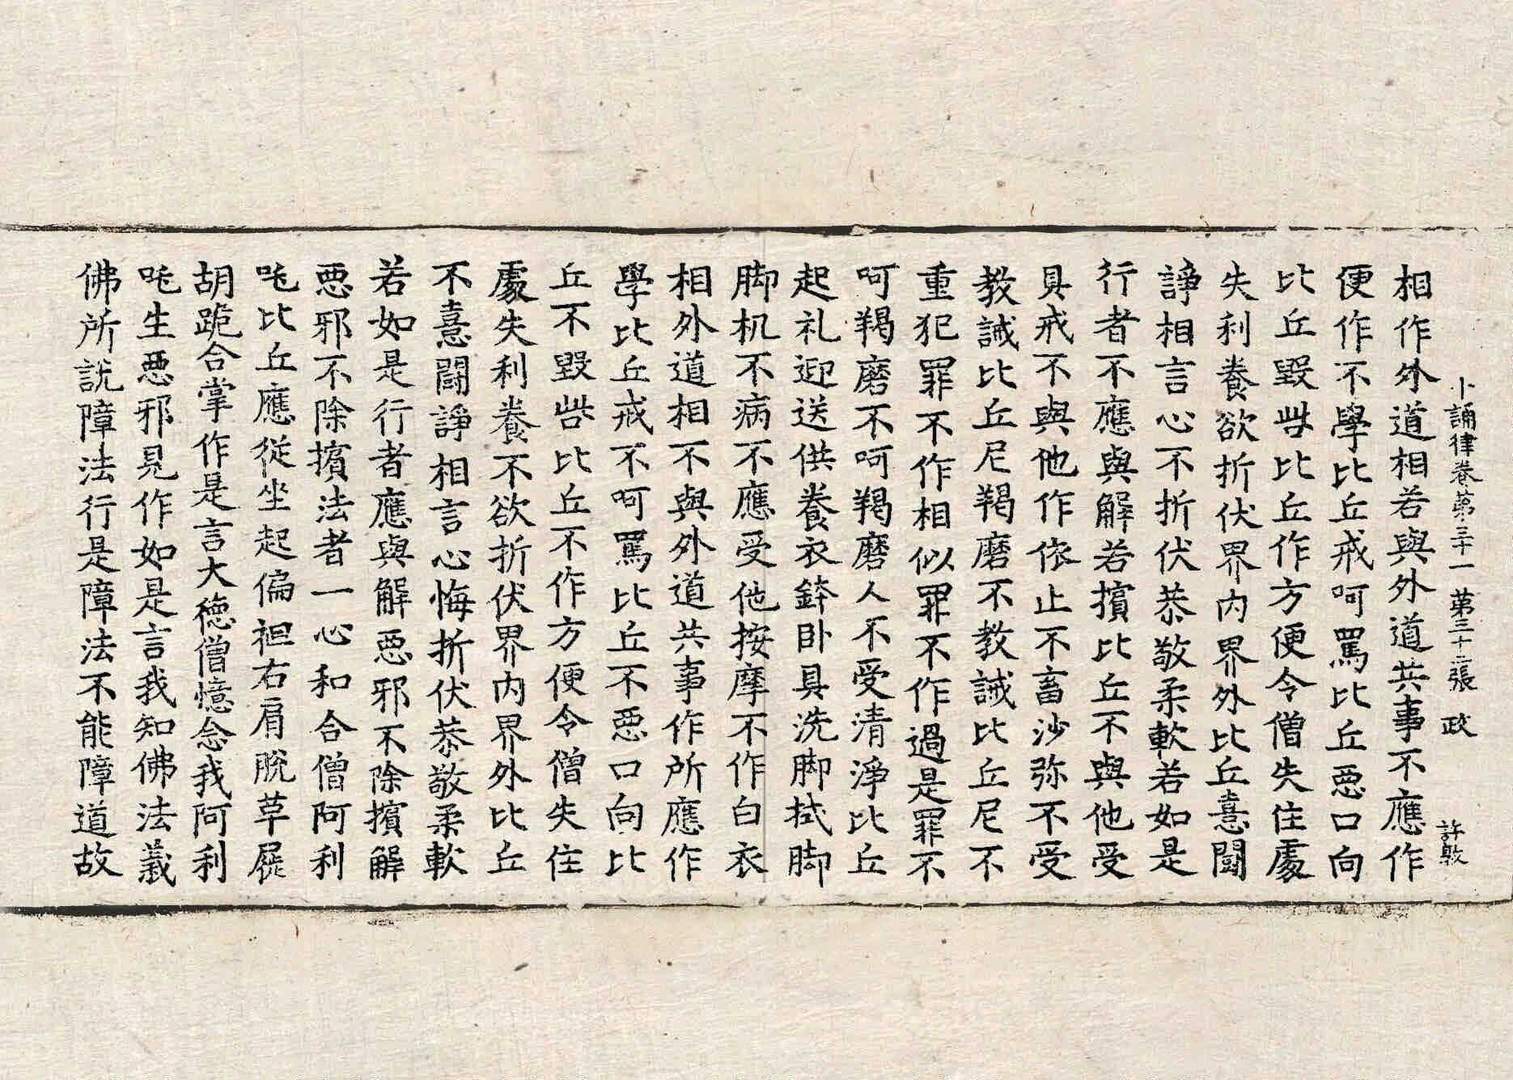 卜誦律卷第三十一 第三十二張 政 許敦
相作外道相若與外道共事不應作
便作不學比丘戒呵罵比丘惡口向
比丘毀呰比丘作方便令僧失住處
失利養欲折伏界內界外比丘憙鬪
諍相言心不折伏恭敬柔軟若如是
行者不應與解若擯比丘不與他受
具戒不與他作依止不畜沙弥不受
教誡比丘尼羯磨不教誡比丘尼不
重犯罪不作相似罪不作過是罪不
呵羯磨不呵羯磨人不受清淨比丘
起礼迎送供養衣鉢卧具洗脚拭脚
脚机不病不應受他按摩不作白衣
相外道相不與外道共事作所應作
學比丘戒不呵罵比丘不惡口向比
丘不毀呰比丘不作方便令僧失住
處失利養不欲折伏界內界外比丘
不憙鬪諍相言心悔折伏恭敬柔軟
若如是行者應與解惡邪不除擯解
惡邪不除擯法者一心和合僧阿利
吒比丘應從坐起偏袒右肩脫草屣
胡跪合掌作是言大德僧憶念我阿利
吒生惡邪見作如是言我知佛法義
佛所說障法行是障法不能障道故